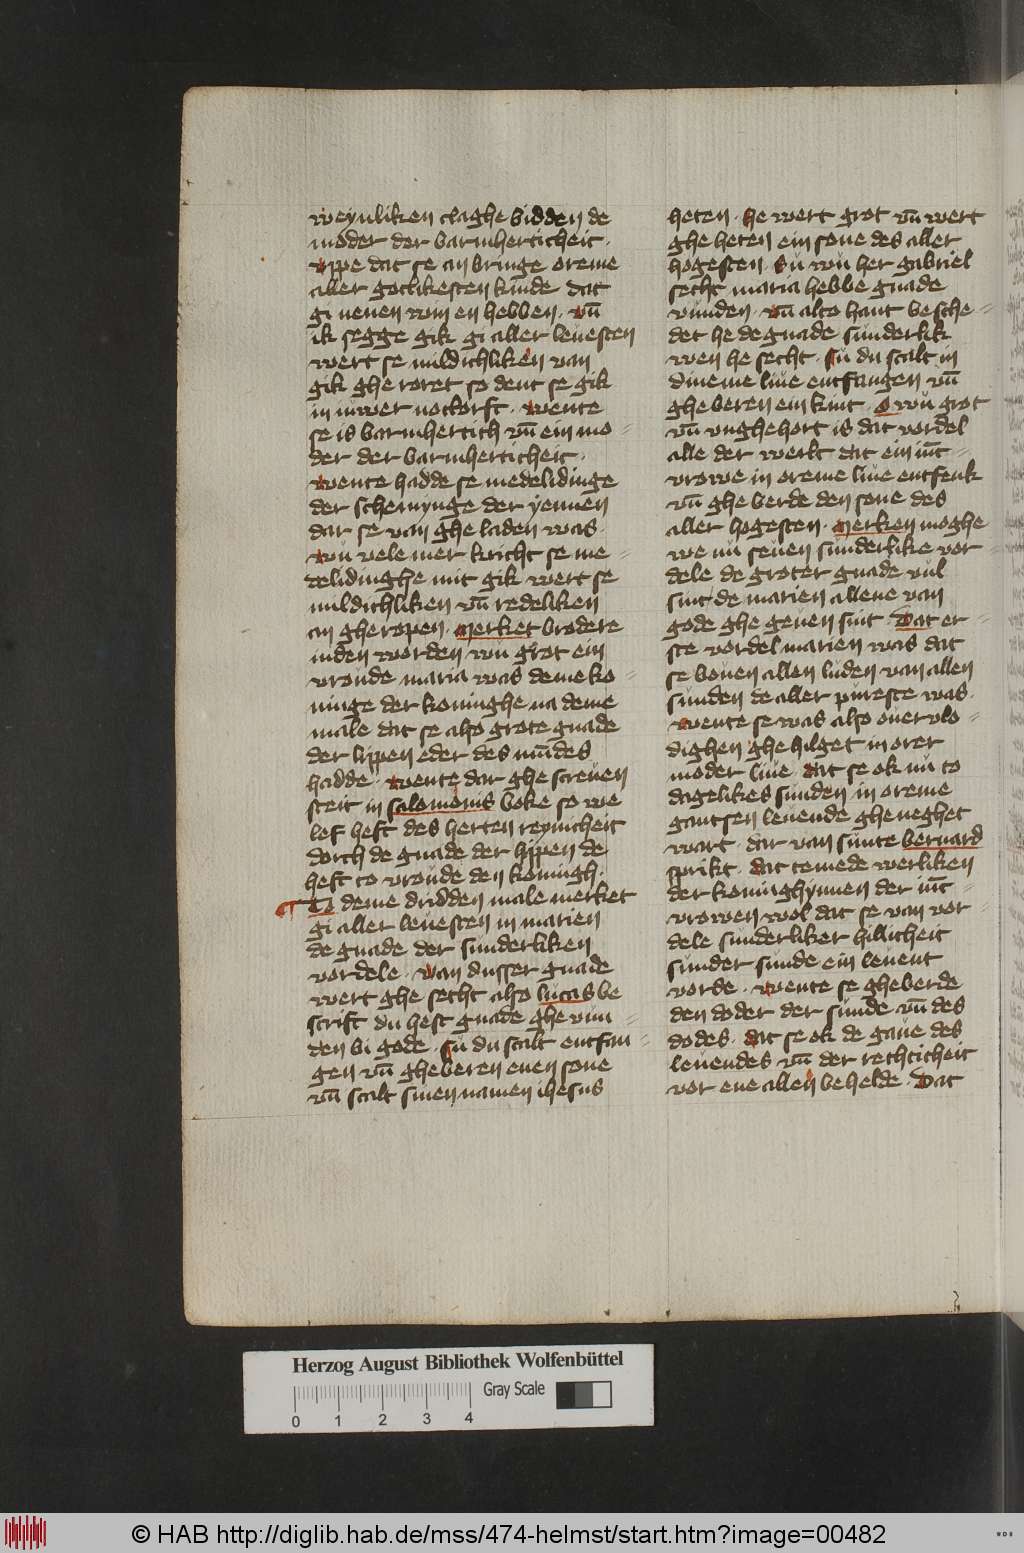 weynliken claghe bidden de
moder der barmherticheit ·
vppe dat se an bringe oreme
aller gotlikesten kinde dat
gi neuen rom en hebben · vn̄
ik segge gik gi aller leuesten
wert se mildichliken van
gik ghe roret so dent se gik
in iuwer notdorft · wente
se is barmhertich vn̄ ein mo=
der der barmherticheit ·
wente hadde se medelidinge
der schemynge der yennen
dar se van ghe laden was ·
wu vele mer kricht se me=
delidinghe mit gik wert se
mildichliken vn̄ redeliken
an gheropen · merket brodere
in den worden wu grot ein
vronde maria was deme ko=
ninge der koninghe na deme
male dat se also grote gnade
der lippen eder des mu̅des
hadde · wente dar ghe screuen
steit in salomonis boke so we
lef heft des herten reynicheit
dorch de gnade der lippen de
heft to vronde den koningh ·
To deme dridden male merket
gi aller leuesten in marien
de gnade der sunderliken
vordele · van dusser gnade
wert ghe secht also lucas be
scrift du hest gnade ghe vun=
den bi gode · su du scalt entfan=
gen vn̄ gheberen enen sone
vn̄ scalt sinen namen ihesus
heten · he wert grot vn̄ wert
ghe heten ein sone des aller
hogesten · Su wu her gabriel
secht maria hebbe gnade
vunden · vn̄ alto hant besche=
det he de gnade sunderlik
wen he secht · su du scalt in
dineme liue entfangen vn̄
ghe beren ein kint · o wu grot
vn̄ vnghehort is dat vordel
alle der werlt dat ein iu̅c=
vrowe in oreme liue entfenk
vn̄ ghe berde den sone des
aller hogesten · merken moghe
we nu seuen sunderlike vor=
dele de groter gnade vul
sint de marien allene van
gode ghe geuen sint · Dat er=
ste vordel marien was dat
se bouen allen luden van allen
sunden de aller pureste was ·
wente se was also ouer vlo=
dighen ghe hilget in orer
moder liue · dat se ok nu to
dagelikes sunden in oreme
gantsen leuende gheneghet
wart · dar van sunte bernard
sprikt · dat temede werliken
der koninghynnen der iu̅c=
vrowen wol dat se van vor=
dele sunderliker hillicheit
sunder sunde ein leuent
vorde · wente se gheberde
den doder der sunde vn̄ des
dodes · dat se ok de gaue des
leuendes vn̄ der rechticheit
vor ene allen behelde · Dat
Herzog August Bibliothek Wolfenbüttel
0 1 2 3 4
Gray Scale
© HAB http://diglib.hab.de/mss/474-helmst/start.htm?image=00482
WDB